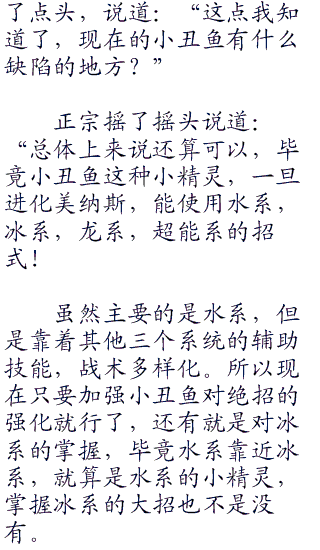 了点头，说道：“这点我知
道了，现在的小丑鱼有什么
缺陷的地方？”
正宗摇了摇头说道：
“总体上来说还算可以，毕
竟小丑鱼这种小精灵，一旦
进化美纳斯，能使用水系，
冰系，龙系，超能系的招
式！
虽然主要的是水系，但
是靠着其他三个系统的辅助
技能，战术多样化。所以现
在只要加强小丑鱼对绝招的
强化就行了，还有就是对冰
系的掌握，毕竟水系靠近冰
系，就算是水系的小精灵，
掌握冰系的大招也不是没
有。